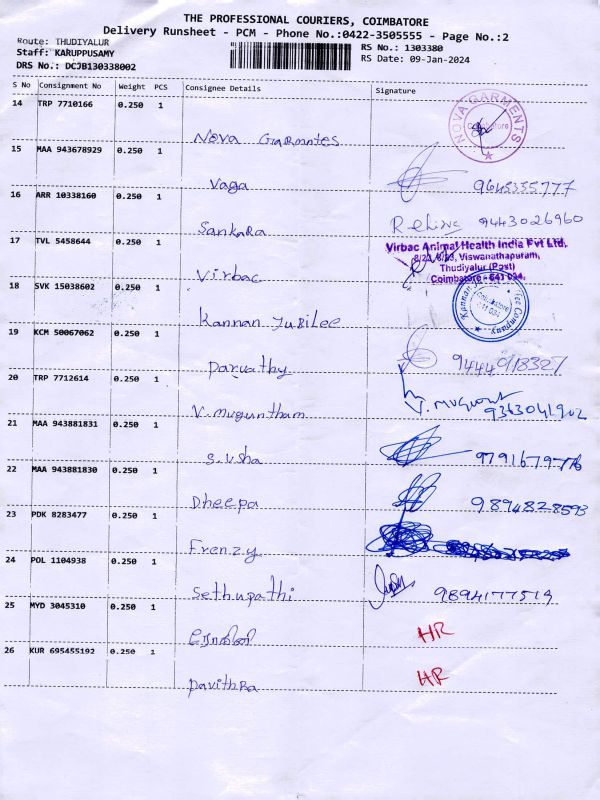 THE PROFESSIONAL COURIERS, COIMBATORE
Delivery Runsheet - PCM - Phone No.:0422-3505555 - Page No.:2
Route: THUDIYALUR
Staff: KARUPPUSAMY
DRS No.: DCJB130338002
RS No.: 1303380
RS Date: 09-Jan-2024
S No Consignment No Weight PCS Consignee Details Signature
14 TRP 7710166 0.250 1
Nova Garmntes
NOVA GARMENTS
Coimbatore
15 MAA 943678929 0.250 1
Vaga 9645355777
16 ARR 10338160 0.250 1
Sankara 9443026960
17 TVL 5458644 0.250 1
Virbac
Virbac Animal Health India Pvt Ltd.
Viswanathapuram,
Thudiyalur (Post)
Coimbatore - 641 034.
18 SVK 15038602 0.250 1
Kannan Jubilee
Kannan Jubilee Coffee Company
Coimbatore
641 034
19 KCM 50067062 0.250 1
Parvathy
20 TRP 7712614 0.250 1
V. muguntham V. 9363041902
21 MAA 943881831 0.250 1
S. Usha 9791679776
22 MAA 943881830 0.250 1
Dheepa 9894828593
23 PDK 8283477 0.250 1
Frenzy
24 POL 1104938 0.250 1
Sethupathi 9894177514
25 MYD 3045310 0.250 1
HR
26 KUR 695455192 0.250 1
Pavithra HR